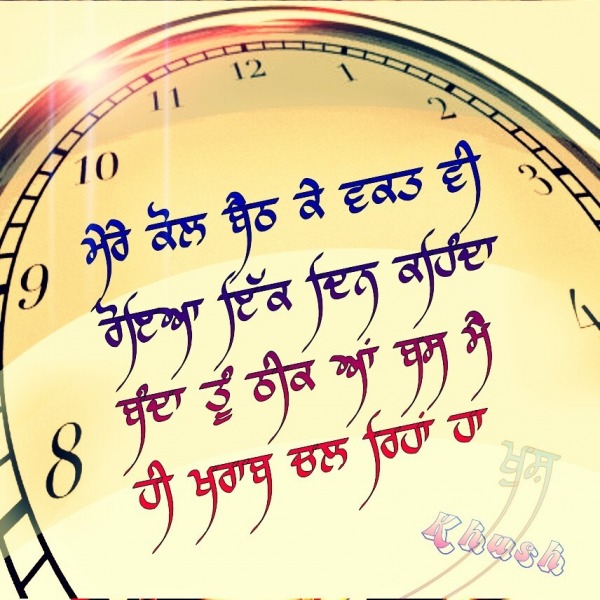 12
1
11
2
10
3
ਮੇਰੇ ਕੋਲ ਬੈਠ ਕੇ ਵਕਤ ਵੀ
9
ਰੋਇਆ ਇੱਕ ਦਿਨ ਕਹਿੰਦਾ
4
ਬੰਦਾ ਤੂੰ ਠੀਕ ਆਂ ਬਸ ਮੈ
8
ਹੀ ਖਰਾਬ ਚਲ ਰਿਹਾਂ ਹਾ
ਖੁਸ਼
Khush